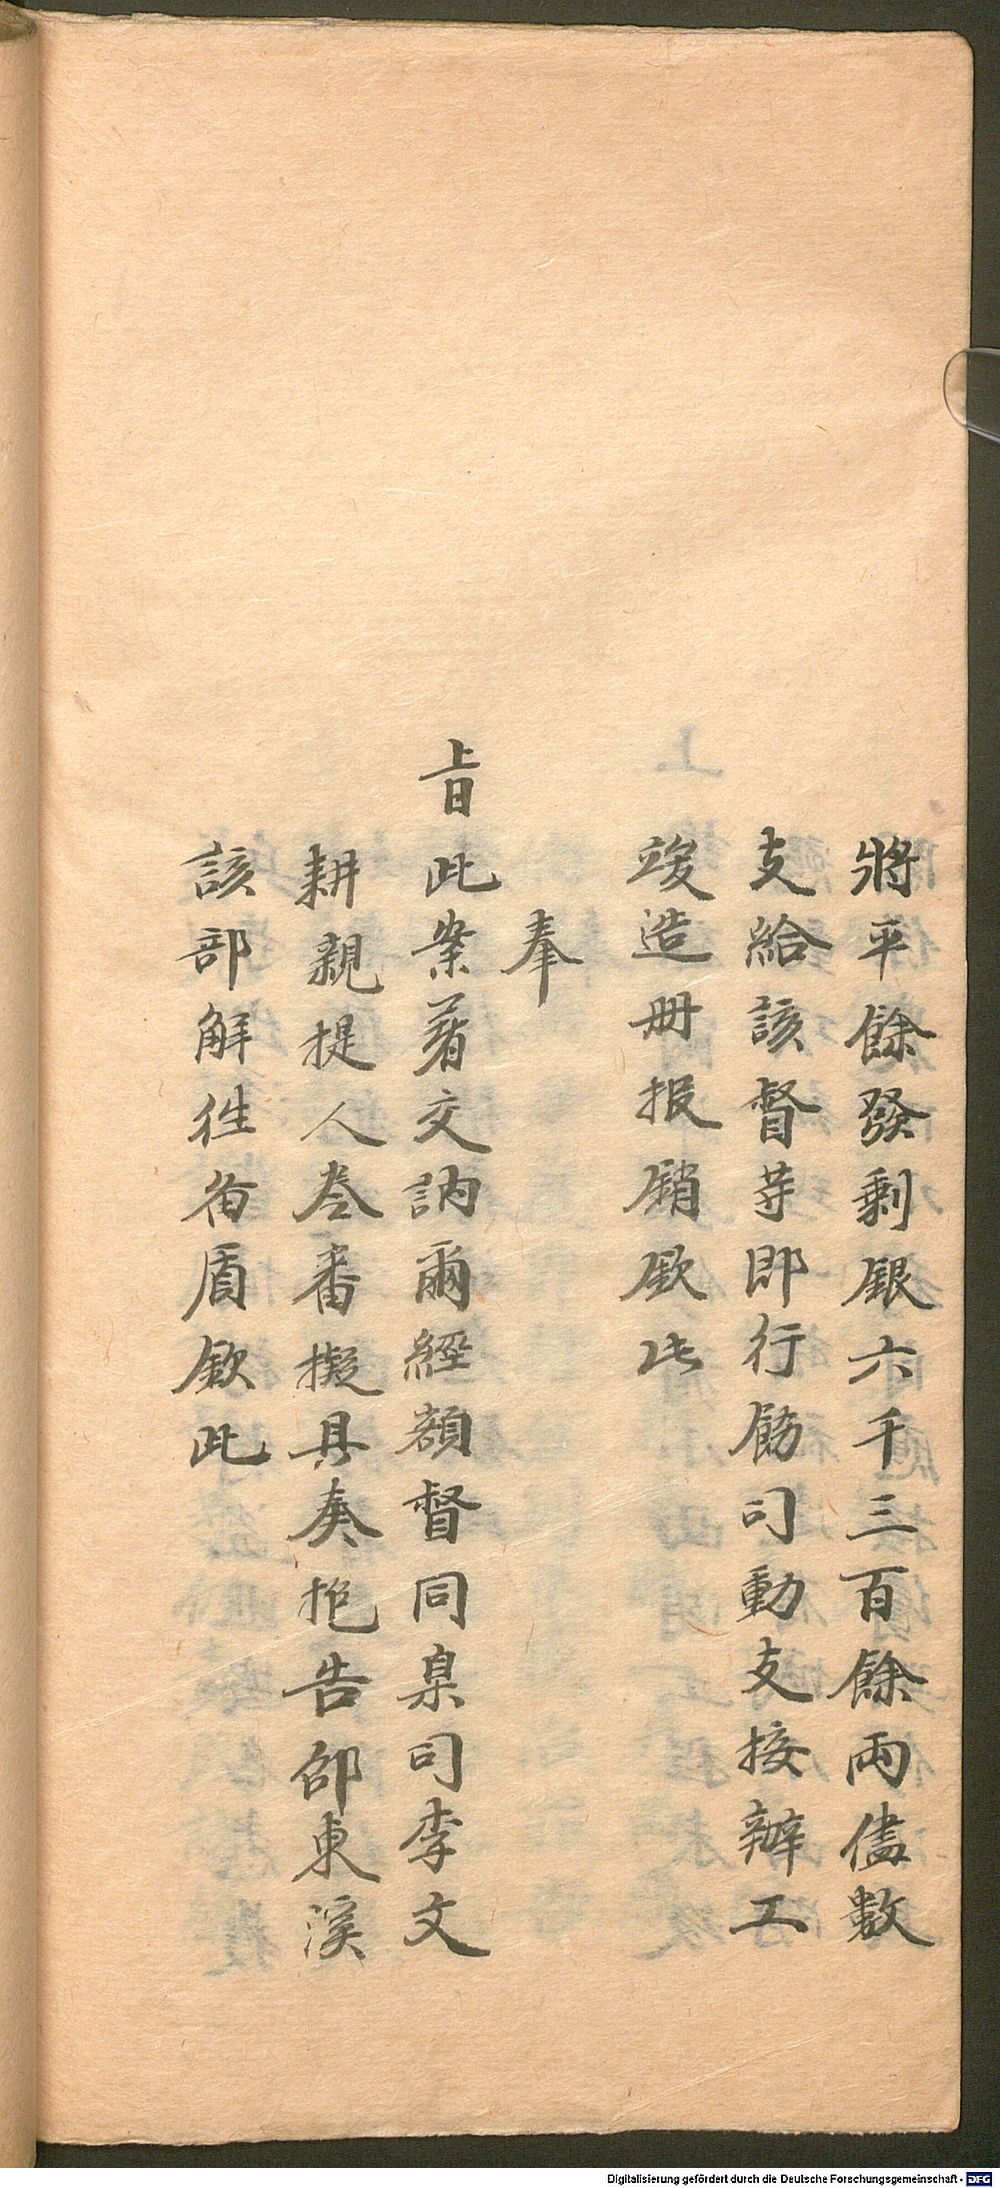 將平餘發剩銀六千三百餘兩儘數
支給該督等即行飭司動支接辦工
竣造册报銷欽此
奉
旨此案着交訥爾經額督同臬司李文
耕親提人卷審擬具奏抱告邵東溪
該部解往俻質欽此
Digitalisierung gefördert durch die Deutsche Forschungsgemeinschaft - DFG